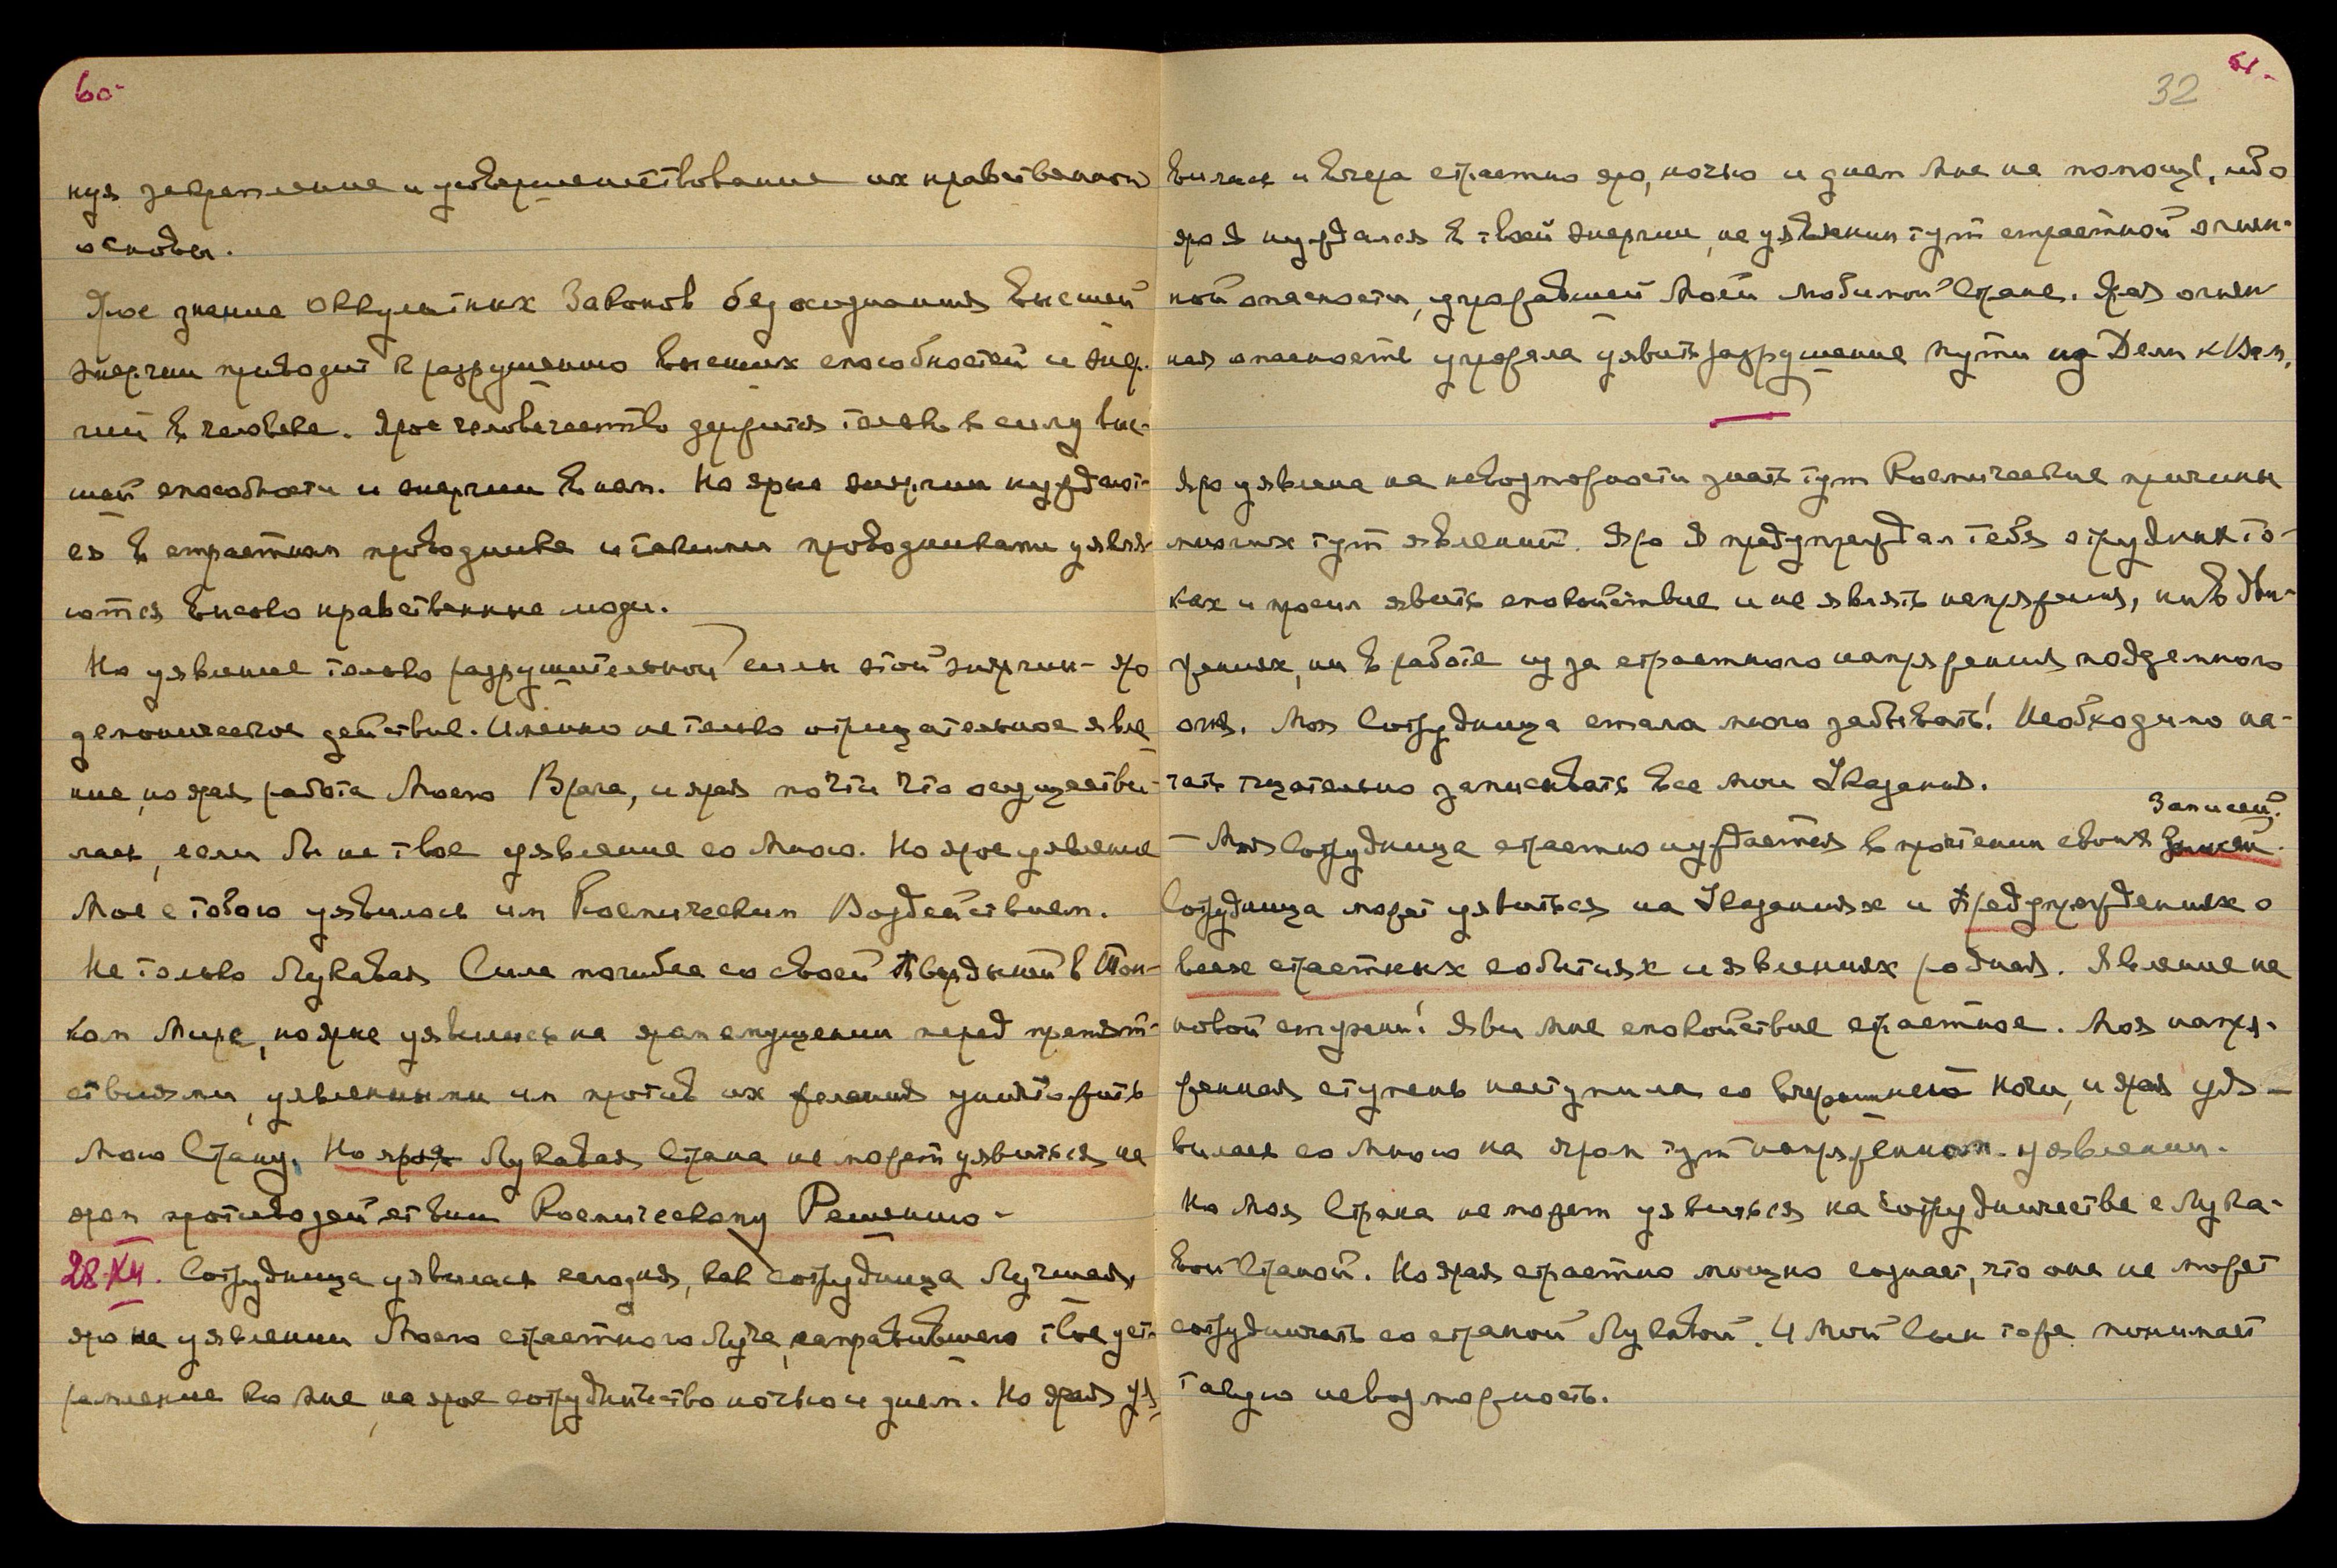 60-
ную закрепление и усовершенствование их нравственной
основы.
Ярое знание Оккультных Законов без осознания Высшей
Энергии приводит к разрушению высших способностей и энер-
гий в человеке. Ярое человечество держится только в силу выс-
шей способности и энергии в нем. Но ярые энергии нуждают-
ся в страстном проводнике и такими проводниками уявля-
ются высоко нравственные люди.
Но уявление только разрушительной силы этой энергии - яро
демоническое действие. Именно не только отрицательное явле-
ние, но ярая работа Моего Врага, и ярая почти что осуществи-
лась, если бы не твое уявление со Мною. Но ярое уявление
Мое с тобою уявилось им Космическим Воздействием.
Не только Лукавая Сила погибла со своей Твердыней в Тон-
ком Мире, но ярые уявились на яром смущении перед препят-
ствиями, уявленными им против их желания уничтожить
Мою Страну. Но ярая Лукавая Страна не может уявиться на
яром противодействии Космическому Решению-
28-XII. Сотрудница уявилась сегодня, как сотрудница Лучшая,
яро на уявлении Моего страстного Луча, направившего твое уст-
ремление ко Мне, на ярое сотрудничество ночью и днем. Но ярая уя-
61.
32
вилась и вчера страстно яро, ночью и днем Мне на помощь, ибо
яро Я нуждался в твоей энергии, на уявлении тут страстной огнен-
ной опасности, угрожавшей Моей любимой Стране. Ярая огнен-
ная опасность угрожала уявить разрушение пути из Дели к Вам.
Яро уявлена на невозможности знать тут Космические причины
многих тут явлений. Яро Я предупреждал тебя о трудных то-
ках и просил явить спокойствие и не являть напряжения, ни в дви-
жениях, ни в работе из за страстного напряжения подземного
огня. Моя Сотрудница стала много забывать! Необходимо на-
чать тщательно записывать все мои Указания.
Записей.
- Моя Сотрудница страстно нуждается в прочтении своих
Сотрудница может уявиться на Указаниях и Предупреждениях о
всех страстных событиях и явлениях родная. Явление на
новой ступени! Яви Мне спокойствие страстное. Моя напря-
женная ступень наступила со вчерашней ночи, и ярая уя-
вилась со Мною на яром тут напряженном уявлении.
Но Моя Страна не может уявиться на сотрудничестве с Лука-
вой Страной. Но ярая страстно мощно сознает, что она не может
сотрудничать со страной Лукавой. И Мой Сын тоже понимает
такую невозможность.